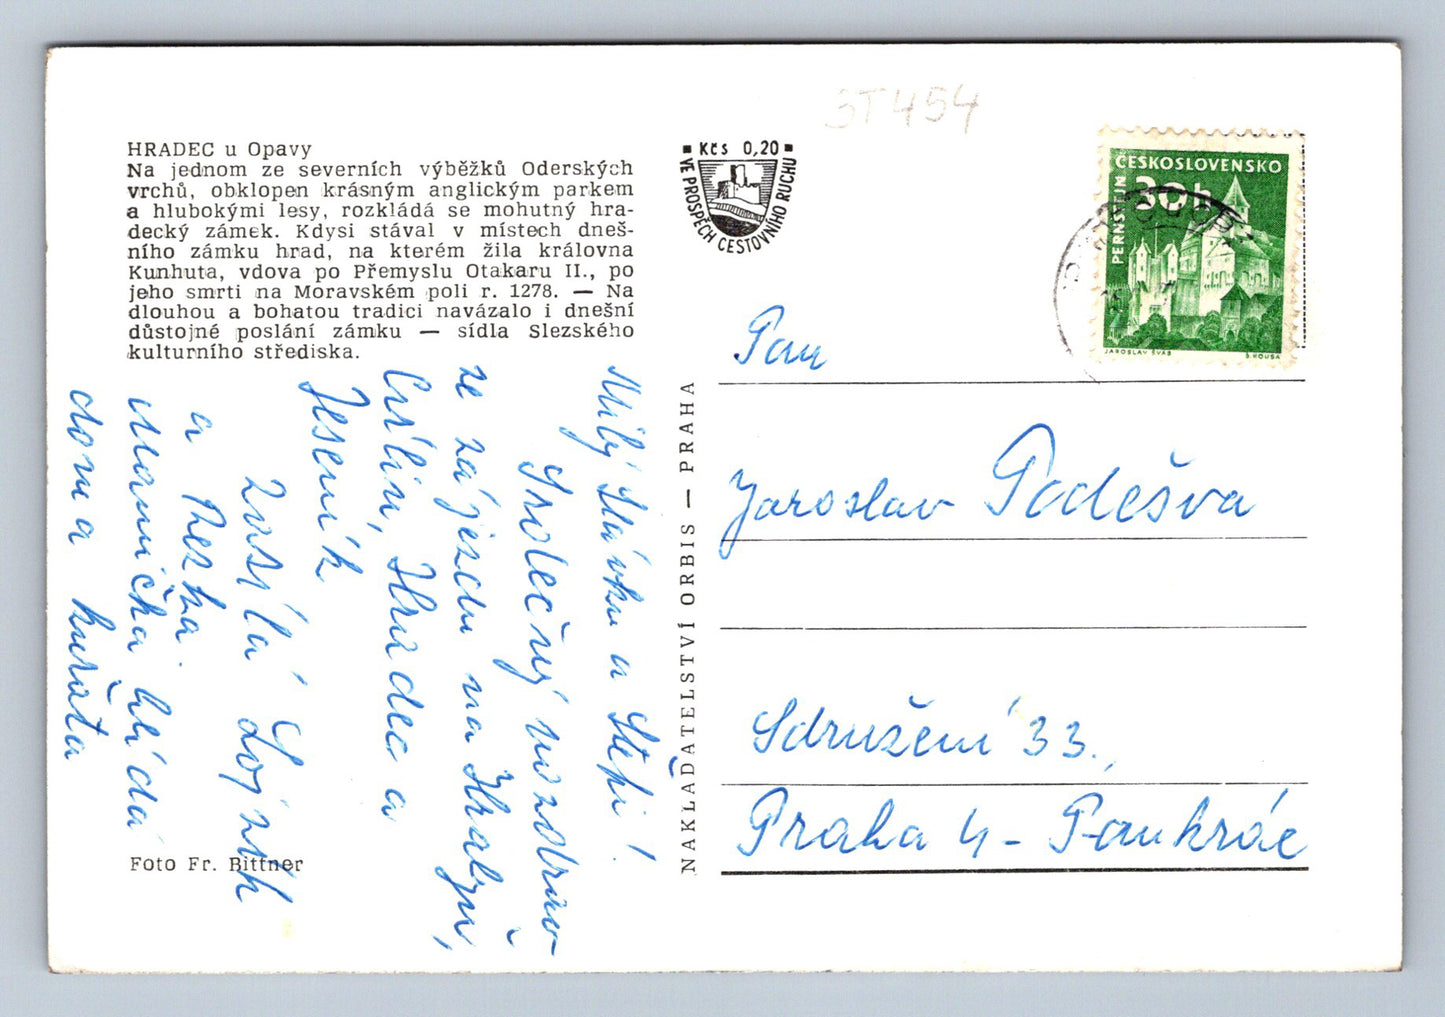 ST454
HRADEC u Opavy
Na jednom ze severních výběžků Oderských
vrchů, obklopen krásným anglickým parkem
a hlubokými lesy, rozkládá se mohutný hra-
decký zámek. Kdysi stával v místech dneš-
ního zámku hrad, na kterém žila královna
Kunhuta, vdova po Přemyslu Otakaru II., po
jeho smrti na Moravském poli r. 1278. — Na
dlouhou a bohatou tradici navázalo i dnešní
důstojné poslání zámku — sídla Slezského
kulturního střediska.
Milý Slávku a Stépi!
Srdečný pozdrav
ze zájezdu na
a
Jeseník
zasílá
a
Mamička hlídá
doma kuřata
Foto Fr. Bittner
NAKLADATELSTVÍ ORBIS — PRAHA
Kčs 0,20
VE PROSPĚCH CESTOVNÍHO RUCHU
ČESKOSLOVENSKO
30h
PERNŠTEJN
JAROSLAV ŠVÁB
Pan
Jaroslav Poděšva
Sdružení 33.,
Praha 4 - Pankrác